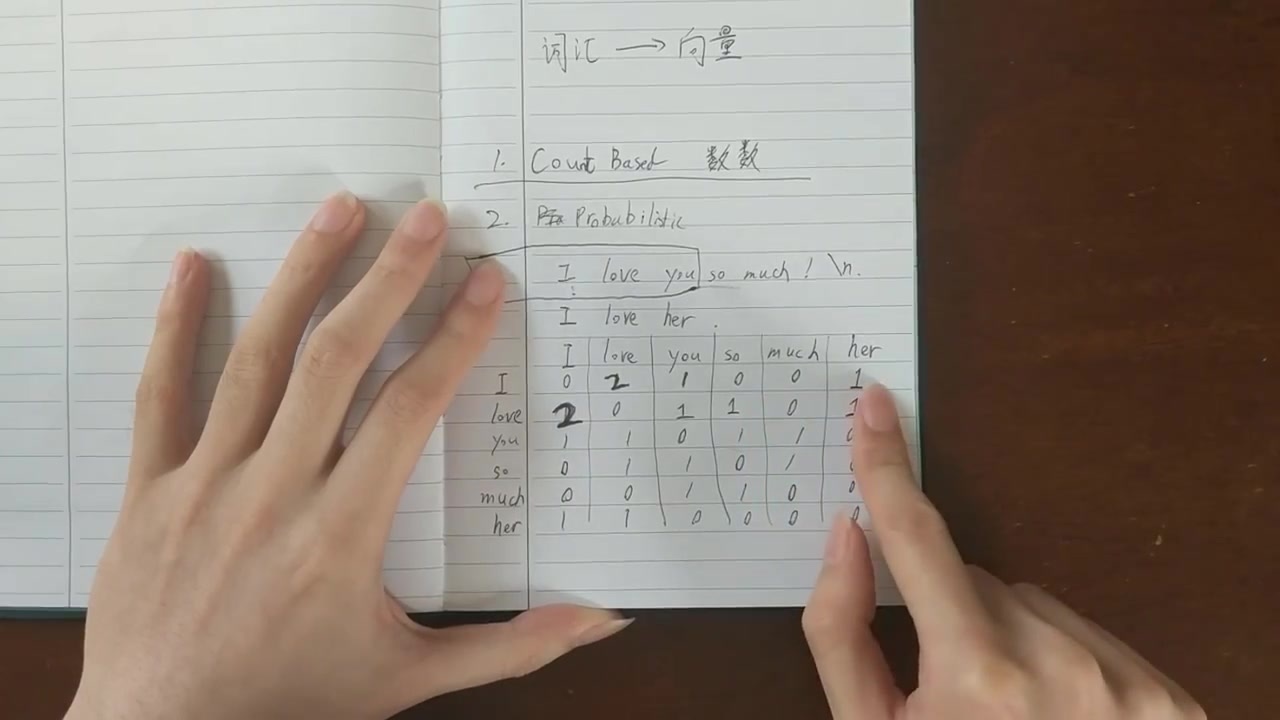 词汇 → 向量
1. Count Based 数数
2. Probabilistic
I love you so much! \n.
I love her.
I love you so much her
I 0 2 1 0 0 1
love 2 0 1 1 0 1
you 1 1 0 1 1 0
so 0 1 1 0 1 0
much 0 0 1 1 0 0
her 1 1 0 0 0 0